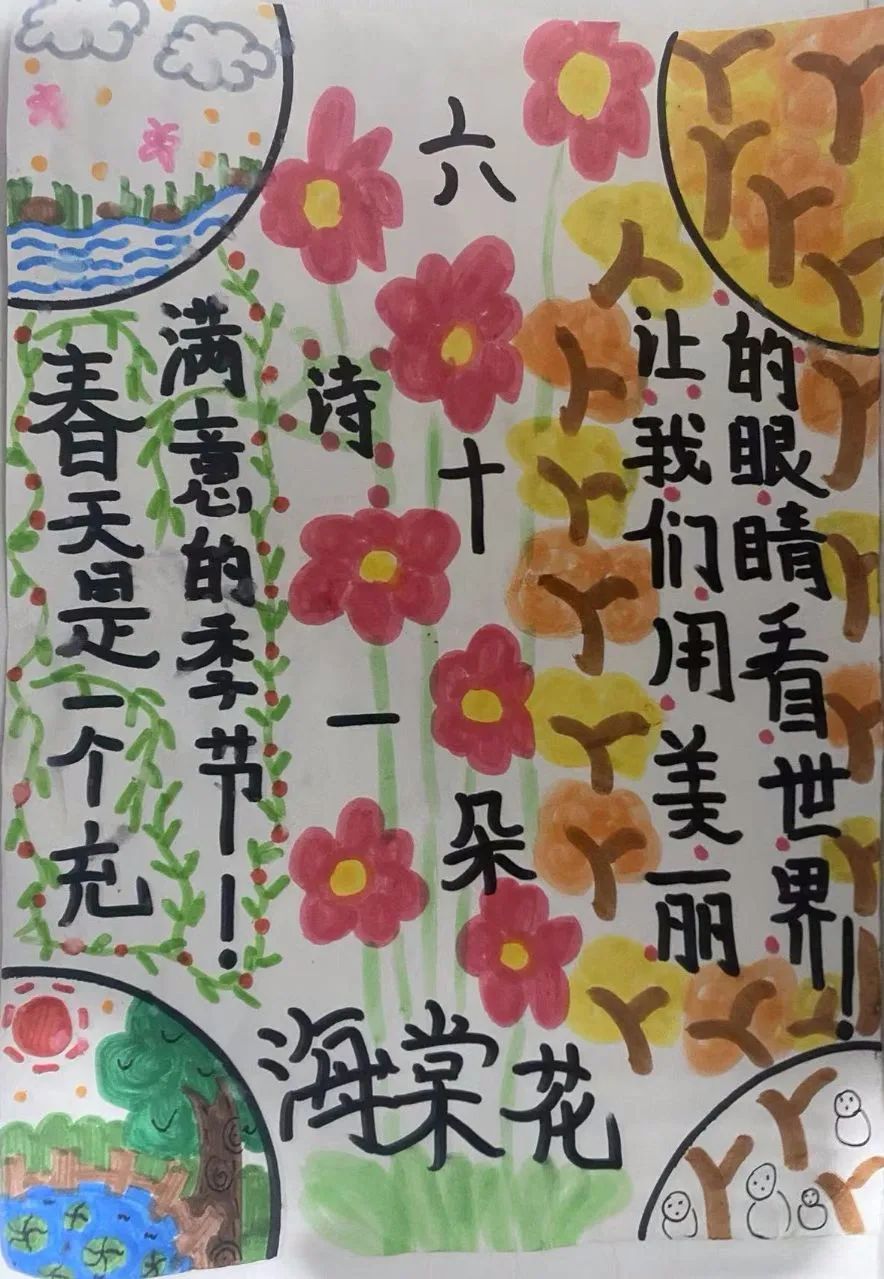 春天是一个充
满意的季节！
六
诗
十
一
朵
海棠花
让我们用美丽
的眼睛看世界！